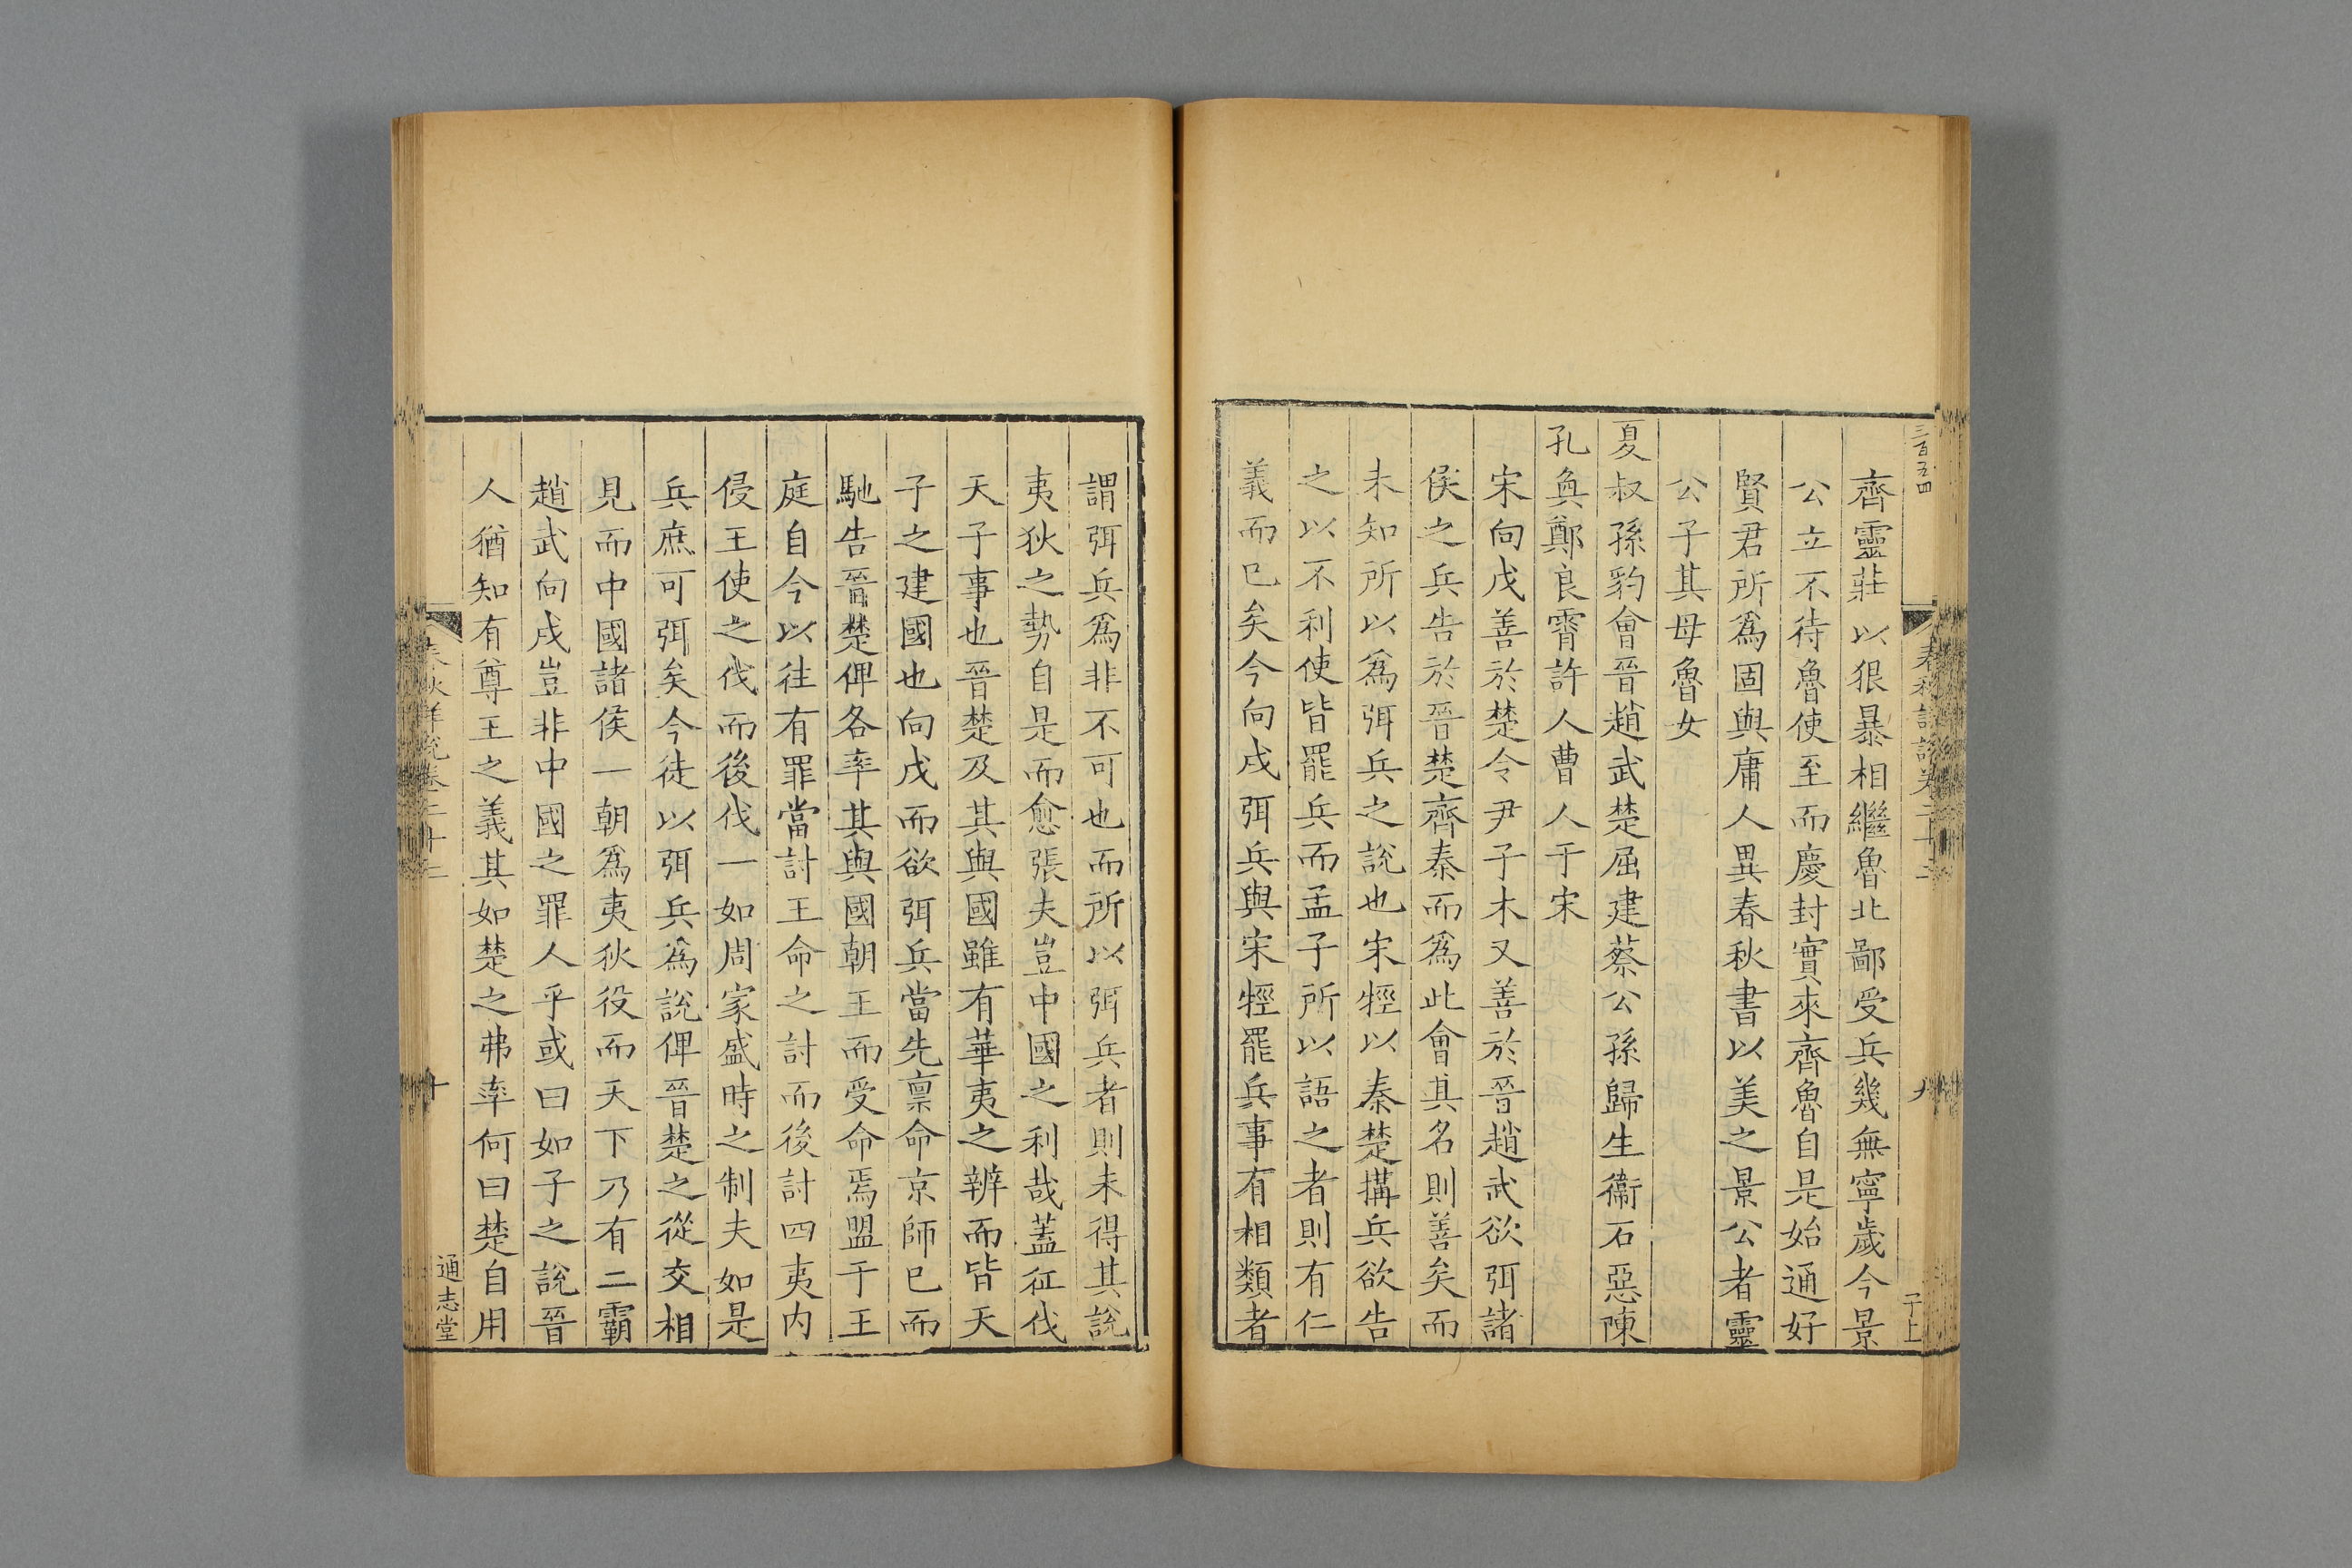 三百五四
春秋詳說卷二十二
九
子上
齊靈莊以狠暴相繼魯北鄙受兵幾無寧歲今景
公立不待魯使至而慶封實來齊魯自是始通好
賢君所爲固與庸人異春秋書以美之景公者靈
公子其母魯女
夏叔孫豹會晉趙武楚屈建蔡公孫歸生衞石惡陳
孔奐鄭良霄許人曹人于宋
宋向戌善於楚令尹子木又善於晉趙武欲弭諸
侯之兵告於晉楚齊秦而爲此會其名則善矣而
未知所以爲弭兵之說也宋牼以秦楚搆兵欲告
之以不利使皆罷兵而孟子所以語之者則有仁
義而已矣今向戌弭兵與宋牼罷兵事有相類者
謂弭兵爲非不可也而所以弭兵者則未得其說
夷狄之勢自是而愈張夫豈中國之利哉蓋征伐
天子事也晉楚及其與國雖有華夷之辨而皆天
子之建國也向戌而欲弭兵當先禀命京師已而
馳告晉楚俾各率其與國朝王而受命焉盟于王
庭自今以往有罪當討王命之討而後討四夷內
侵王使之伐而後伐一如周家盛時之制夫如是
兵庶可弭矣今徒以弭兵爲說俾晉楚之從交相
見而中國諸侯一朝爲夷狄役而天下乃有二霸
趙武向戌豈非中國之罪人乎或曰如子之說晉
人猶知有尊王之義其如楚之弗率何曰楚自用
春秋詳說卷二十二
十
通志堂